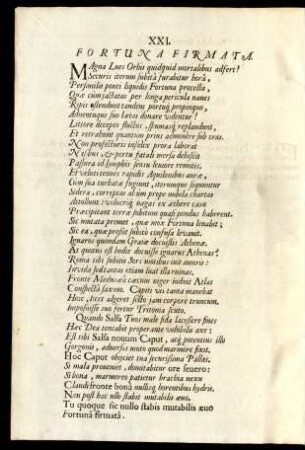 XXI.
FORTUNA FIRMATA.
MAgna Lues Orbis quidquid mortalibus adfert!
Securis iterum subitâ furabitur horâ,
Per
ponti liquido Fortuna procella,
Quæ cum jactatas per longa pericula naves
Ripis ostendens tandem portuq́; propinquo,
Adventuque suo lætos donare videtur!
Littore deceptos fluctus, spumasq́; replaudunt,
Et retrahunt quantum prius admovêre sub oras.
Non profecturis infelix prora laborat
Nisibus, & portu fatali mersa dehiscit
Passura id lymphis sensu leviore remotis.
Et velut ventus rapidis Aquilonibus auræ,
Cum sua turbatæ fugiunt, iterumque sequuntur
Sidera, correptas ab imo prope nubila chartas
Attollunt; volucriq́; nagat ex æthere casu
Præcipitant terræ subitum quasi pondus haberent.
Sic mutata premet, quæ nox Fortuna levabit;
Sic ea, quæ pressit subitò confusa levavit.
Ignaros quondam Graiæ docuistis Athenæ.
At quotus est hodie docuisse ignarus Athenas?
Roma tibi subito
motibus ibit amor:
Invida sed tantas etiam luat illa ruinas,
Fronte
cæcum
induit Atlas
Conspectâ saxum. Capiti vis tanta manebat
Hoc, licet algeret secto jam corpore truncum,
Imposuisse suo fertur Tritonia scuto.
Quando Salsa Tuos male fida lacessere fines
Hæc Dea tentabit properante volubilis axe:
Est tibi Salsa novum Caput, atq́; potentius illo
Gorgonio, adversos notu quod marmore finxit,
Hoc Caput objiciet tua securissima Pallas,
Si mala proveniet, domitabitur ore severo:
Si bona, marmoreo patietur brachia nexu
Claudi fronte bonâ nullisq́; horrentibus hydris.
Non post hac ullo stabit mutabilis ævo.
Tu quoque sic nullo stabis mutabilis ævo
Fortunâ firmatâ.